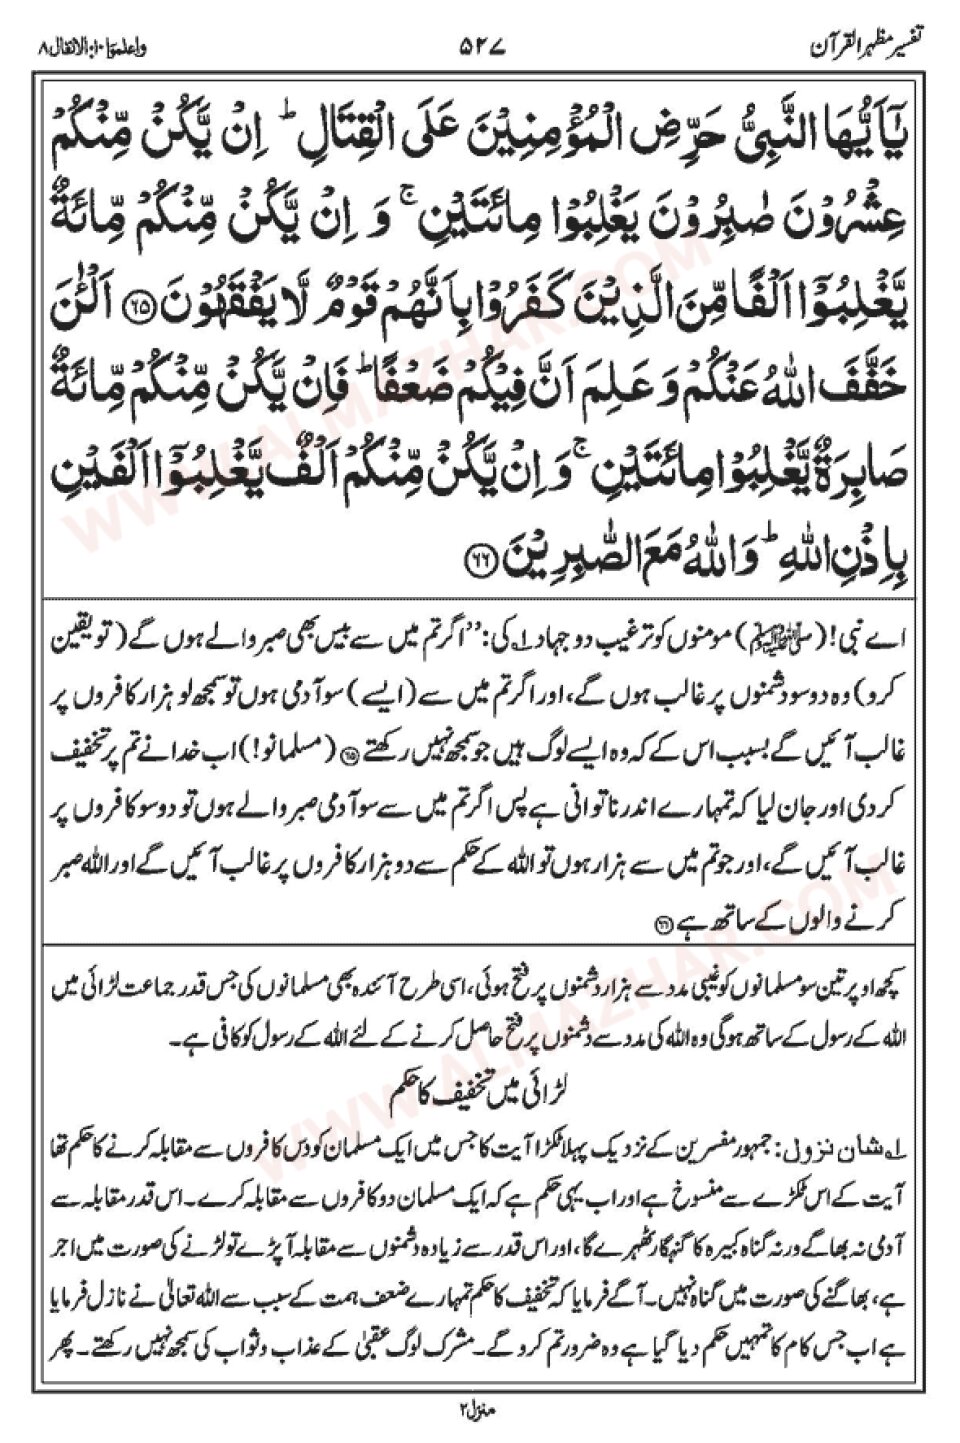 تفسیر مظہر القرآن
۵۲۷
واعلموا ۱۰: الانفال ۸
یٰۤاَیُّهَا النَّبِیُّ حَرِّضِ الْمُؤْمِنِیْنَ عَلَى الْقِتَالِ ؕ اِنْ یَّكُنْ مِّنْكُمْ
عِشْرُوْنَ صٰبِرُوْنَ یَغْلِبُوْا مِائَتَیْنِ ۚ وَ اِنْ یَّكُنْ مِّنْكُمْ مِّائَةٌ
یَّغْلِبُوْۤا اَلْفًا مِّنَ الَّذِیْنَ كَفَرُوْا بِاَنَّهُمْ قَوْمٌ لَّا یَفْقَهُوْنَ ﴿۶۵﴾ اَلْـٰٔنَ
خَفَّفَ اللّٰهُ عَنْكُمْ وَ عَلِمَ اَنَّ فِیْكُمْ ضَعْفًا ؕ فَاِنْ یَّكُنْ مِّنْكُمْ مِّائَةٌ
صَابِرَةٌ یَّغْلِبُوْا مِائَتَیْنِ ۚ وَ اِنْ یَّكُنْ مِّنْكُمْ اَلْفٌ یَّغْلِبُوْۤا اَلْفَیْنِ
بِاِذْنِ اللّٰهِ ؕ وَ اللّٰهُ مَعَ الصّٰبِرِیْنَ ﴿۶۶﴾
اے نبی! (ﷺ) مومنوں کو ترغیب دو جہاد ۱؎ کی: ”اگر تم میں سے بیس بھی صبر والے ہوں گے (تو یقین
کرو) وہ دوسو دشمنوں پر غالب ہوں گے، اور اگر تم میں سے (ایسے) سو آدمی ہوں تو سمجھ لو ہزار کافروں پر
غالب آئیں گے بسبب اس کے کہ وہ ایسے لوگ ہیں جو سمجھ نہیں رکھتے ﴿۶۵﴾ (مسلمانو!) اب خدا نے تم پر تخفیف
کر دی اور جان لیا کہ تمہارے اندر ناتوانی ہے پس اگر تم میں سے سو آدمی صبر والے ہوں تو دوسو کافروں پر
غالب آئیں گے، اور جو تم میں سے ہزار ہوں تو اللہ کے حکم سے دو ہزار کافروں پر غالب آئیں گے اور اللہ صبر
کرنے والوں کے ساتھ ہے ﴿۶۶﴾
کچھ اوپر تین سو مسلمانوں کو غیبی مدد سے ہزار دشمنوں پر فتح ہوئی، اسی طرح آئندہ بھی مسلمانوں کی جس قدر جماعت لڑائی میں
اللہ کے رسول کے ساتھ ہو گی وہ اللہ کی مدد سے دشمنوں پر فتح حاصل کرنے کے لئے اللہ کے رسول کو کافی ہے۔
لڑائی میں تخفیف کا حکم
۱؎ شان نزول: جمہور مفسرین کے نزدیک پہلا ٹکڑا آیت کا جس میں ایک مسلمان کو دس کافروں سے مقابلہ کرنے کا حکم تھا
آیت کے اس ٹکڑے سے منسوخ ہے اور اب یہی حکم ہے کہ ایک مسلمان دو کافروں سے مقابلہ کرے۔ اس قدر مقابلہ سے
آدمی نہ بھاگے ورنہ گناہ کبیرہ کا گنہگار ٹھہرے گا، اور اس قدر سے زیادہ دشمنوں سے مقابلہ آ پڑے تو لڑنے کی صورت میں اجر
ہے، بھاگنے کی صورت میں گناہ نہیں۔ آگے فرمایا کہ تخفیف کا حکم تمہارے ضعف ہمت کے سبب سے اللہ تعالیٰ نے نازل فرمایا
ہے اب جس کام کا تمہیں حکم دیا گیا ہے وہ ضرور تم کرو گے۔ مشرک لوگ عقبیٰ کے عذاب و ثواب کی سمجھ نہیں رکھتے۔ پھر
منزل ۲
WWW.ALMAZHAR.COM
WWW.ALMAZHAR.COM